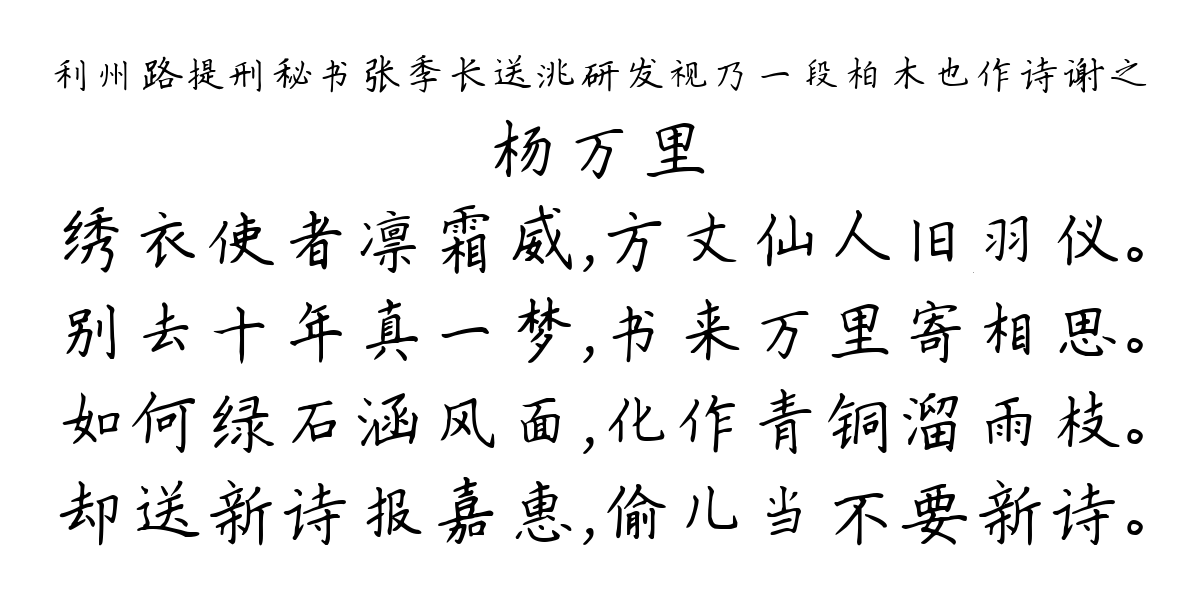 利州路提刑秘书张季长送洮研发视乃一段柏木也作诗谢之
杨万里
绣衣使者凛霜威,方丈仙人旧羽仪。
别去十年真一梦,书来万里寄相思。
如何绿石涵风面,化作青铜溜雨枝。
却送新诗报嘉惠,偷儿当不要新诗。